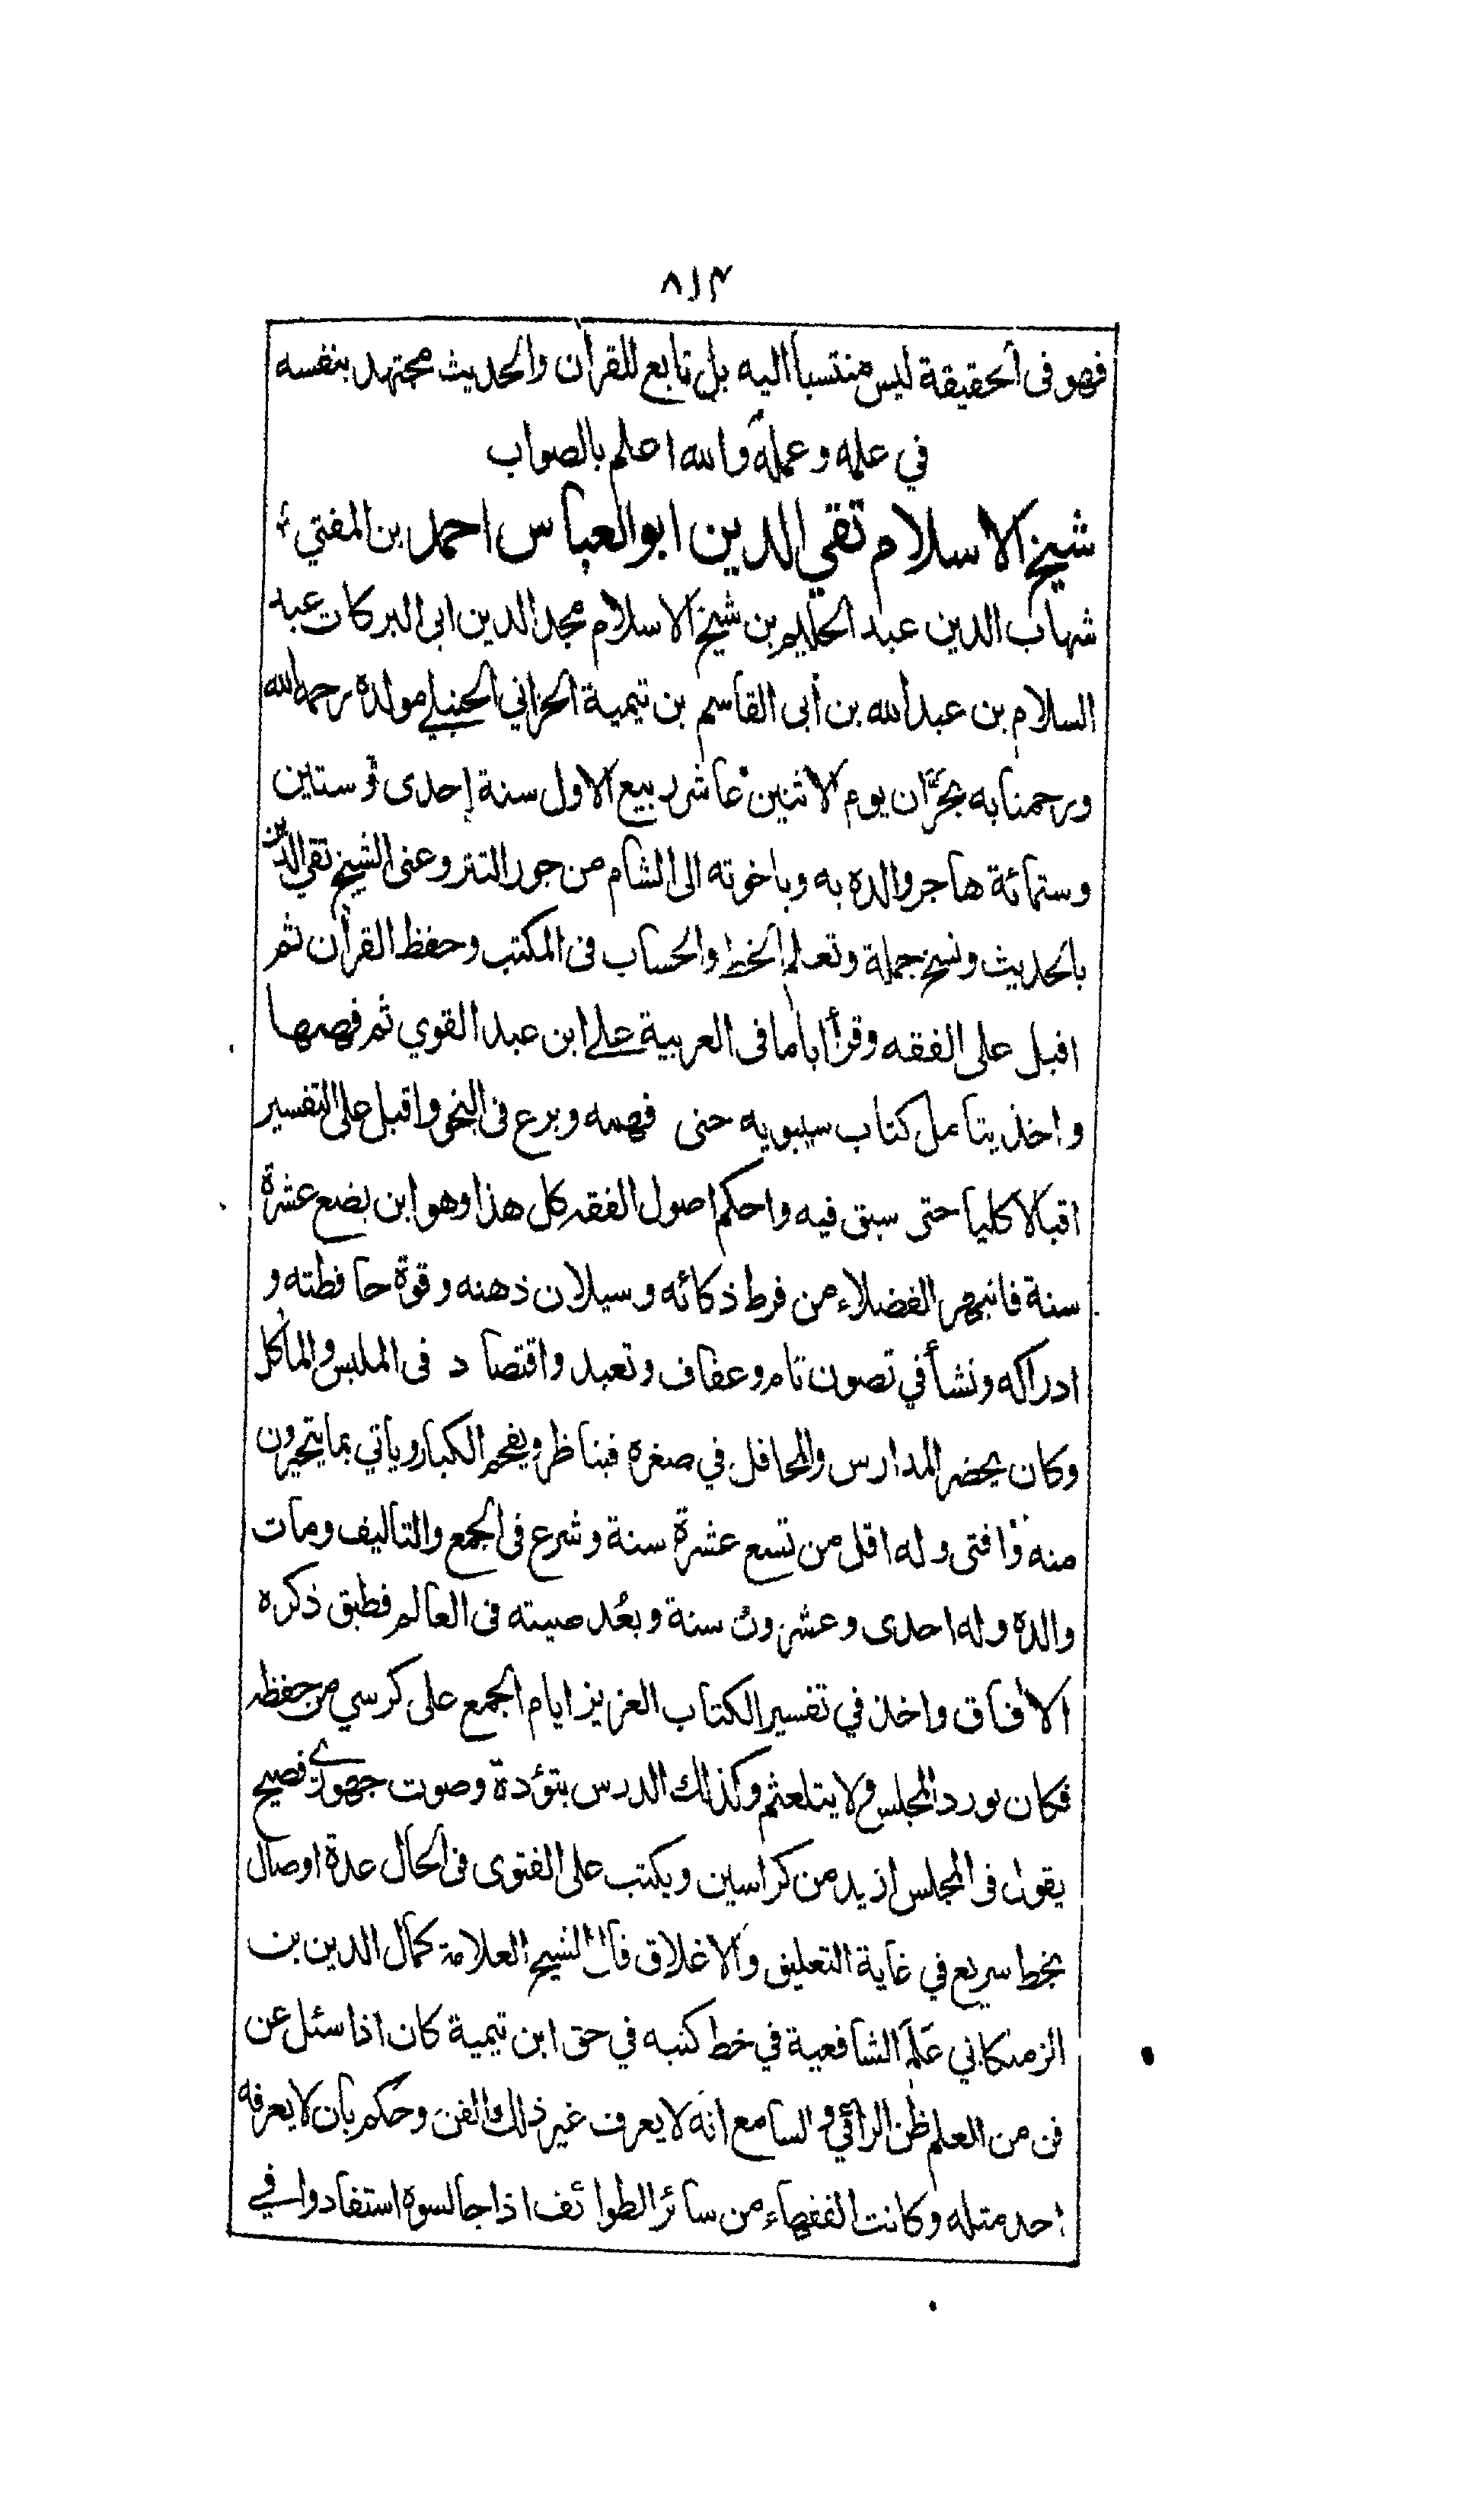 ٨١٣
فهو فى الحقيقة ليس منتسباً اليه بل تابع للقرأن والحديث مجتهد بنفسه
في علمه وعمله والله اعلم بالصواب
شيخ الاسلام تقي الدين ابو العباس احمد بن المفتي
شهاب الدين عبد الحليم بن شيخ الاسلام مجد الدين ابى البركات عبد
السلام بن عبد الله بن أبى القاسم بن تيمية الحراني الحنبلي مولده رحمه الله
ورحمنا به بحَرَّان يوم الاثنين عاشر ربيع الاول سنة إحدى وستين
وستمائة هاجر والده به وباخوته الى الشام من جور التتر وعنى الشيخ تقي الدين
بالحديث ونسخ جملة وتعلم الخط والحساب فى المكتب وحفظ القرأن ثم
اقبل على الفقه وقرأ اياما فى العربية على ابن عبد القوي ثم فهمها
واخذ يتأمل كتاب سيبويه حتى فهمه وبرع فى النحو واقبل على التفسير
اقبالا كليا حتى سبق فيه واحكم اصول الفقه كل هذا وهو ابن بضع عشرة
سنة فانبهر الفضلاء من فرط ذكائه وسيلان ذهنه وقوة حافظته و
ادراكه ونشأ في تصون تام وعفاف وتعبد واقتصاد فى الملبس والمأكل
وكان يحضر المدارس والمحافل في صغره فيناظر ويفحم الكبار وياتي بما يتحيرون
منه وافتى وله اقل من تسع عشرة سنة وشرع فى الجمع والتاليف ومات
والده وله احدى وعشرون سنة وبعُد صيته فى العالم فطبق ذكره
الافاق واخذ في تفسير الكتاب العزيز ايام الجمع على كرسي من حفظه
فكان يورد المجلس ولا يتلعثم وكذلك الدرس بتؤدة وصوت جهوري فصيح
يقول فى المجلس ازيد من كراسين ويكتب على الفتوى فى الحال عدة اوصال
بخط سريع في غاية التعليق والاغلاق قال الشيخ العلامة كمال الدين بن
الزملكاني عَلَم الشافعية في خط كتبه في حق ابن تيمية كان اذا سئل عن
فن من العلم ظن الرائي والسامع انه لا يعرف غير ذلك الفن وحكم بأن لا يعرفه
احد مثله وكانت الفقهاء من سائر الطوائف اذا جالسوه استفادوا في